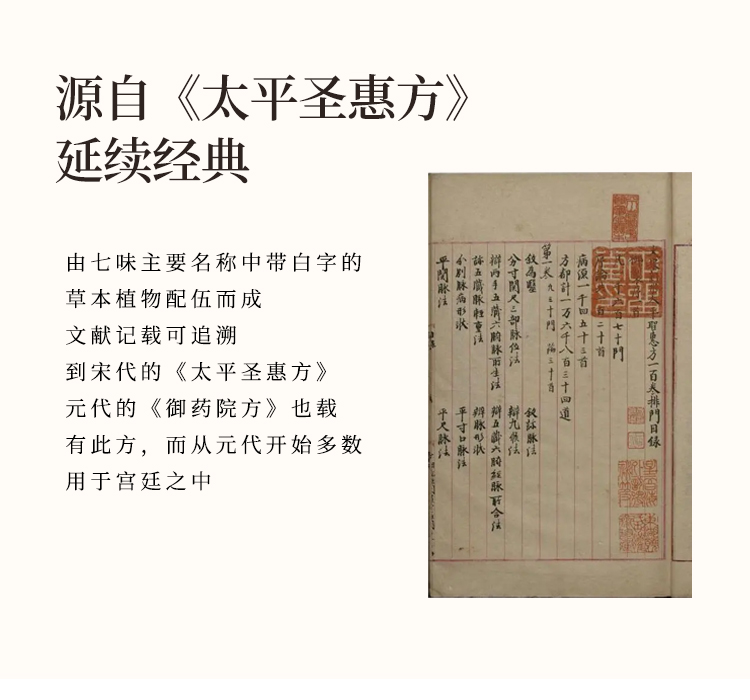 源自《太平圣惠方》
延续经典
由七味主要名称中带白字的
草本植物配伍而成
文献记载可追溯
到宋代的《太平圣惠方》
元代的《御药院方》也载
有此方，而从元代开始多数
用于宫廷之中
聖惠方一百卷排門目錄
七十門
二十首
病源一千四百五十三首
方都計一万六千八百三十四道
第一卷 九三十門 論三十首
叙為醫 叙診脉法
分寸關尺三部脉位法 辨九候法
辨兩手五臟六腑脉所生法 辨五臟六腑經脉所合法
診五臟脉輕重法 辨脉形狀
分別脉病形狀 平寸口脉法
平關脉法 平尺脉法